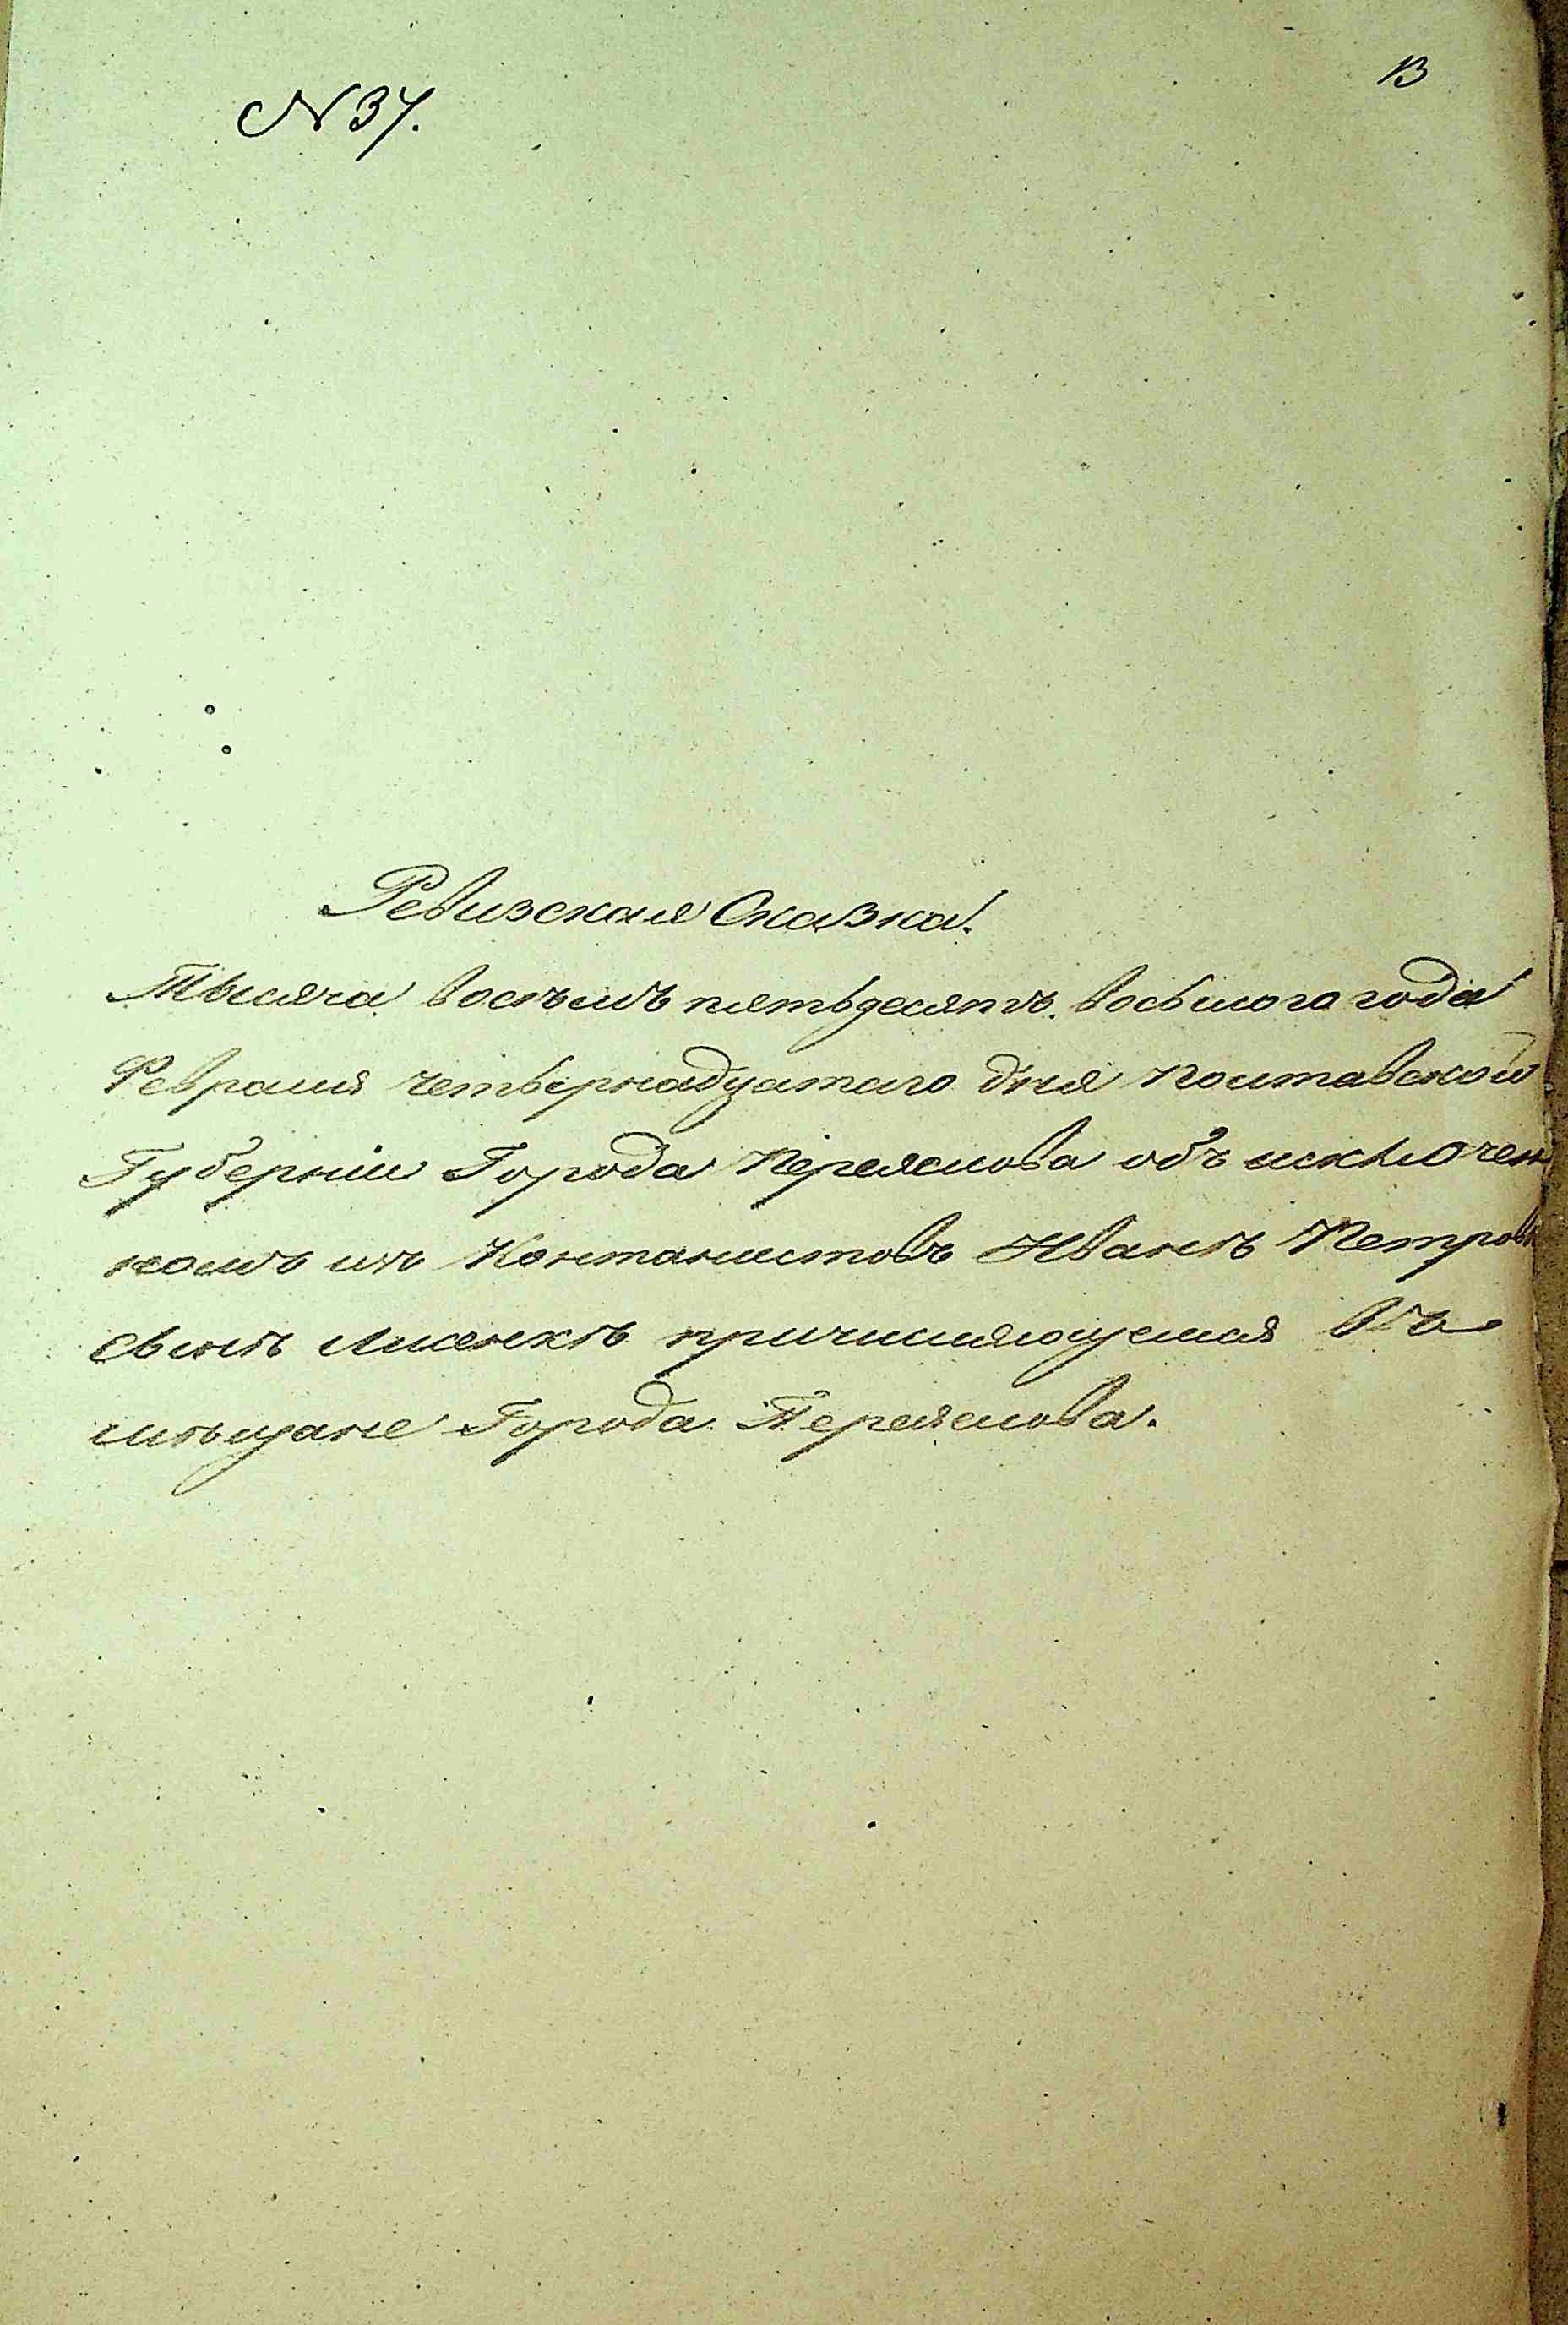 13
N 37.
Ревизская Сказка.
Тысяча восемъ пятьдесятъ восьмого года
Февраля четвернадцатаго дня Полтавской
Губерніи Города Переяслова объ исключен
номъ изъ Контонистовъ Иванѣ Петровѣ
сынѣ Лисенкѣ причисляющемся въ
мѣщане Города Переяслова.